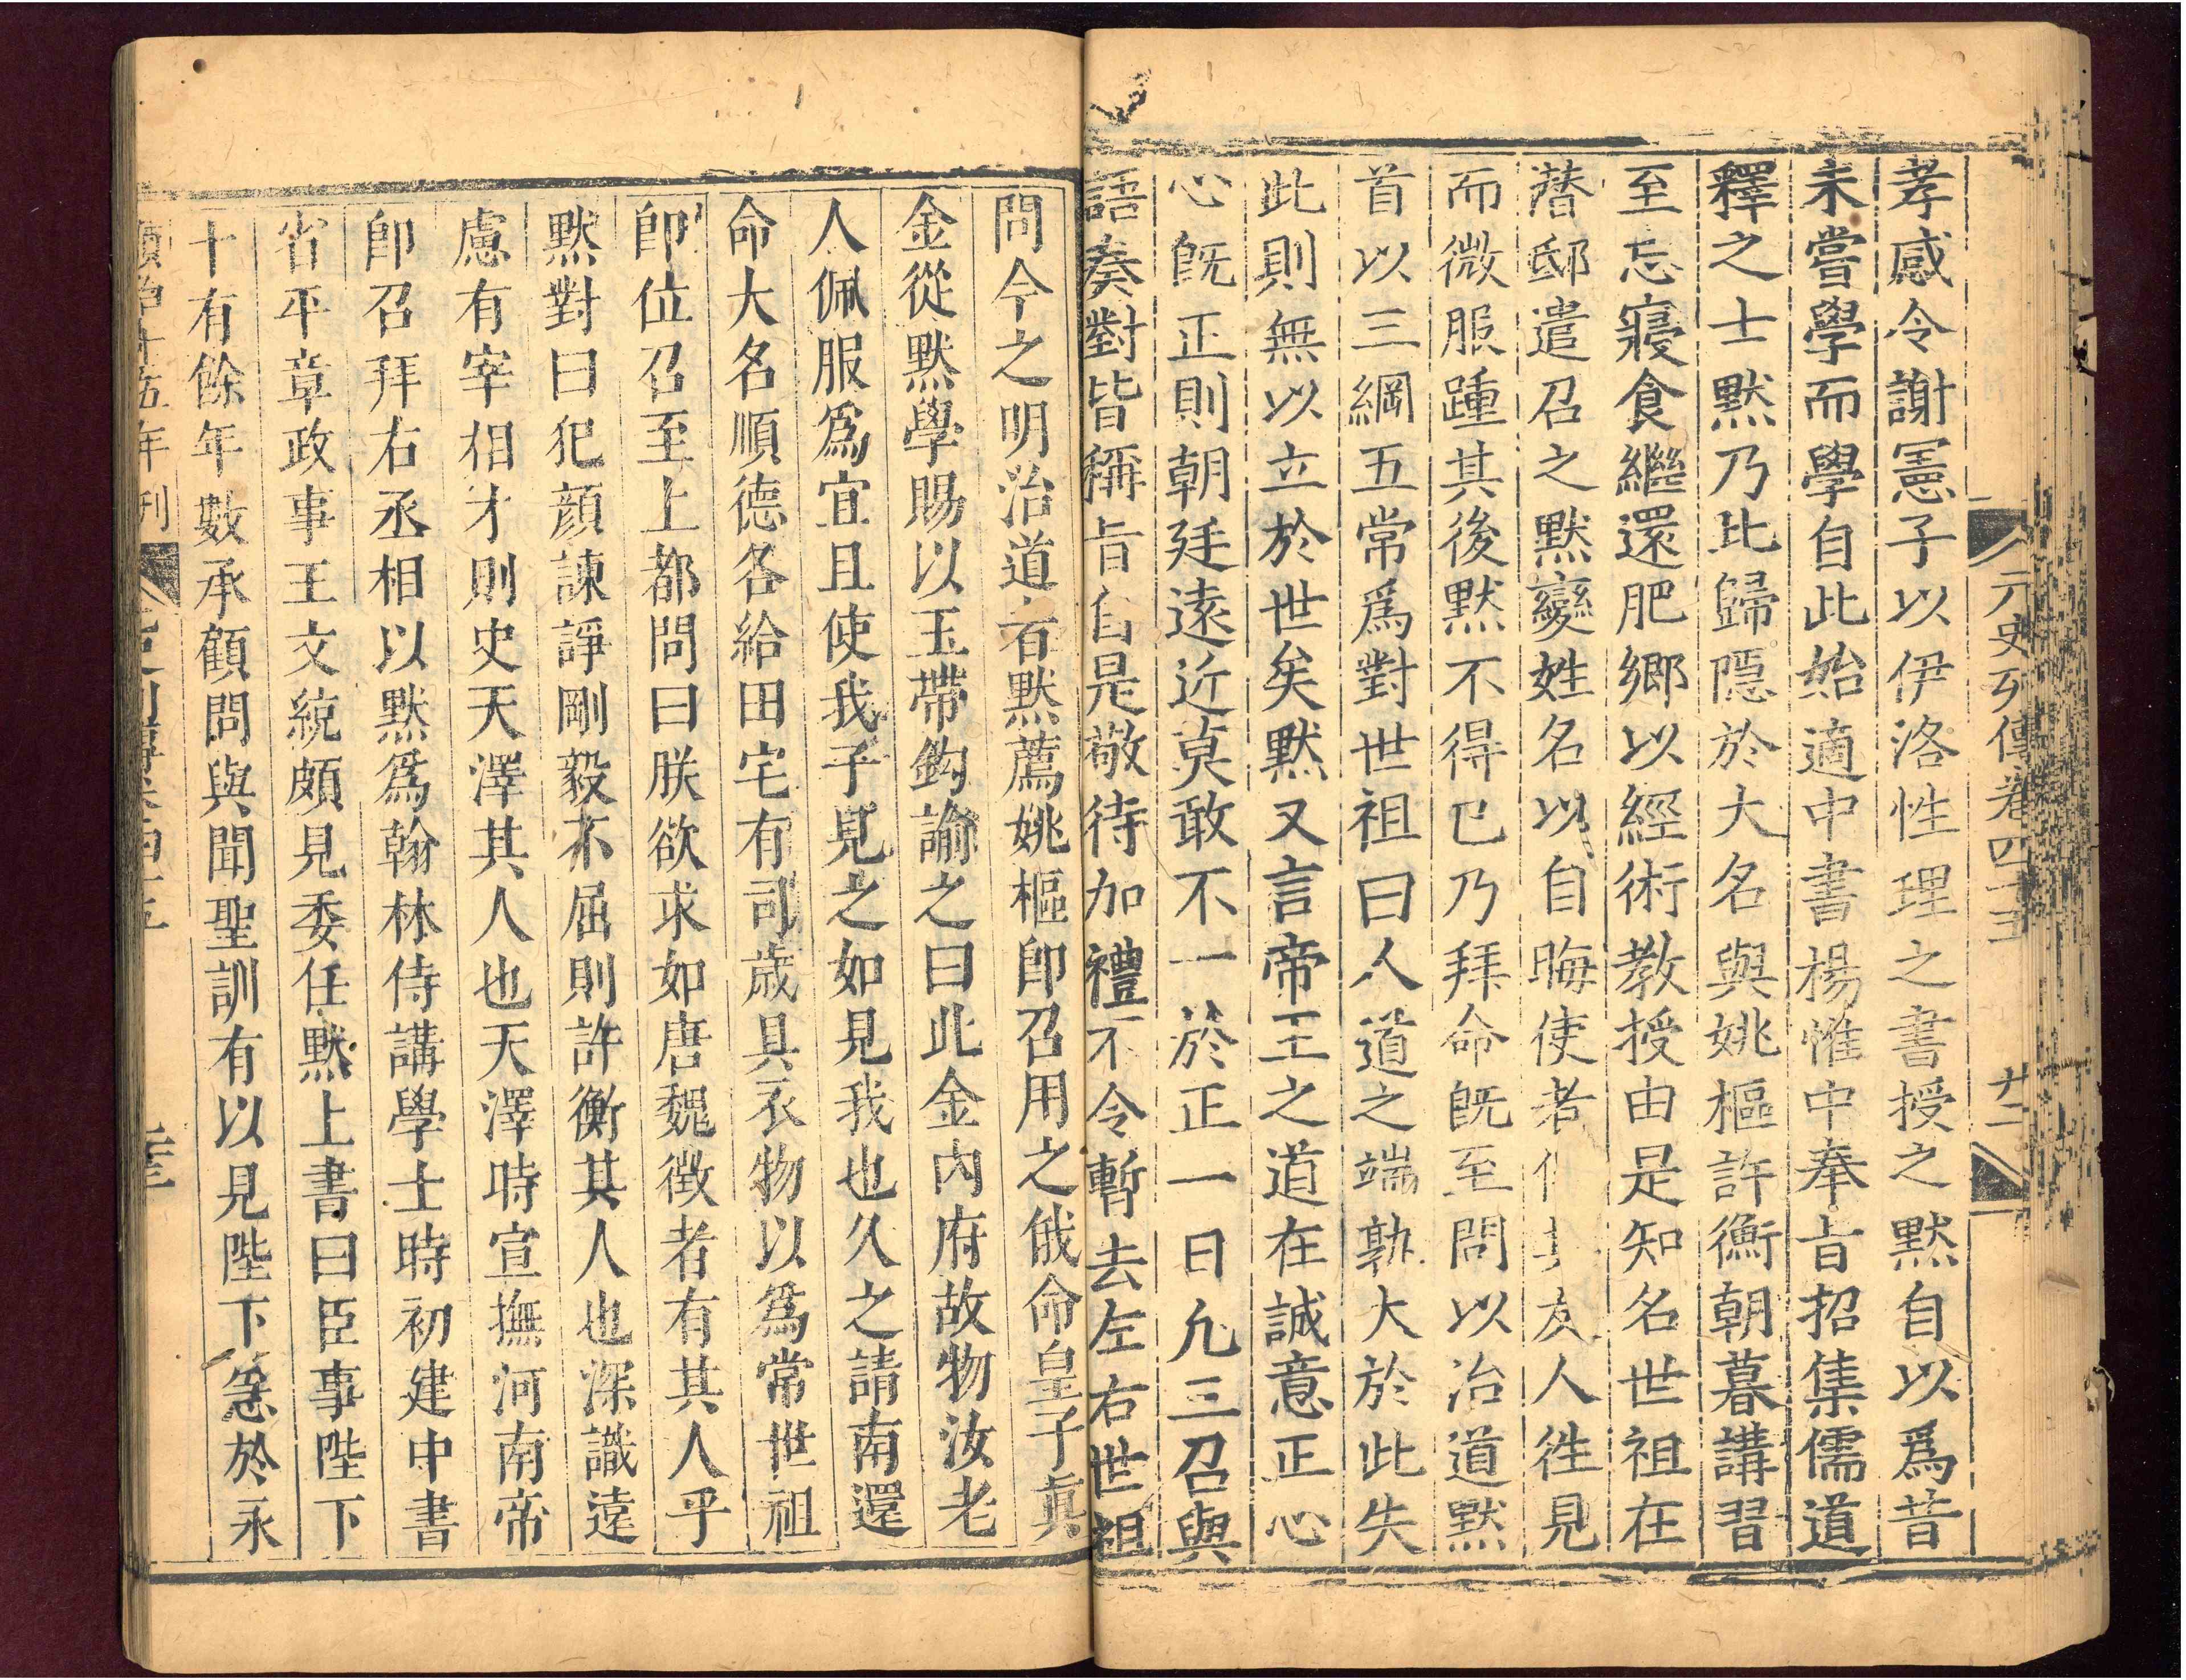 元史列傳卷四十五 廿二
孝感令謝憲子以伊洛性理之書授之默自以爲昔
未嘗學而學自此始適中書楊惟中奉旨招集儒道
釋之士默乃北歸隱於大名與姚樞許衡朝暮講習
至忘寢食繼還肥鄉以經術教授由是知名世祖在
潛邸遣召之默變姓名以自晦使者友人徃見
而微服踵其後默不得已乃拜命旣至問以治道默
首以三綱五常爲對世祖曰人道之端孰大於此失
此則無以立於世矣默又言帝王之道在誠意正心
心旣正則朝廷遠近莫敢不一於正一日凢三召與
語奏對皆稱旨自是敬待加禮不令暫去左右世祖
問今之明治道者默薦姚樞卽召用之俄命皇子眞
金從默學賜以玉帶鈎諭之曰此金內府故物汝老
人佩服爲宜且使我子見之如見我也久之請南還
命大名順德各給田宅有司歲具衣物以爲常世祖
卽位召至上都問曰朕欲求如唐魏徵者有其人乎
默對曰犯顔諫諍剛毅不屈則許衡其人也深識遠
慮有宰相才則史天澤其人也天澤時宣撫河南帝
卽召拜右丞相以默爲翰林侍講學士時初建中書
省平章政事王文統頗見委任默上書曰臣事陛下
十有餘年數承顧問與聞聖訓有以見陛下急於求
順治十五年刊